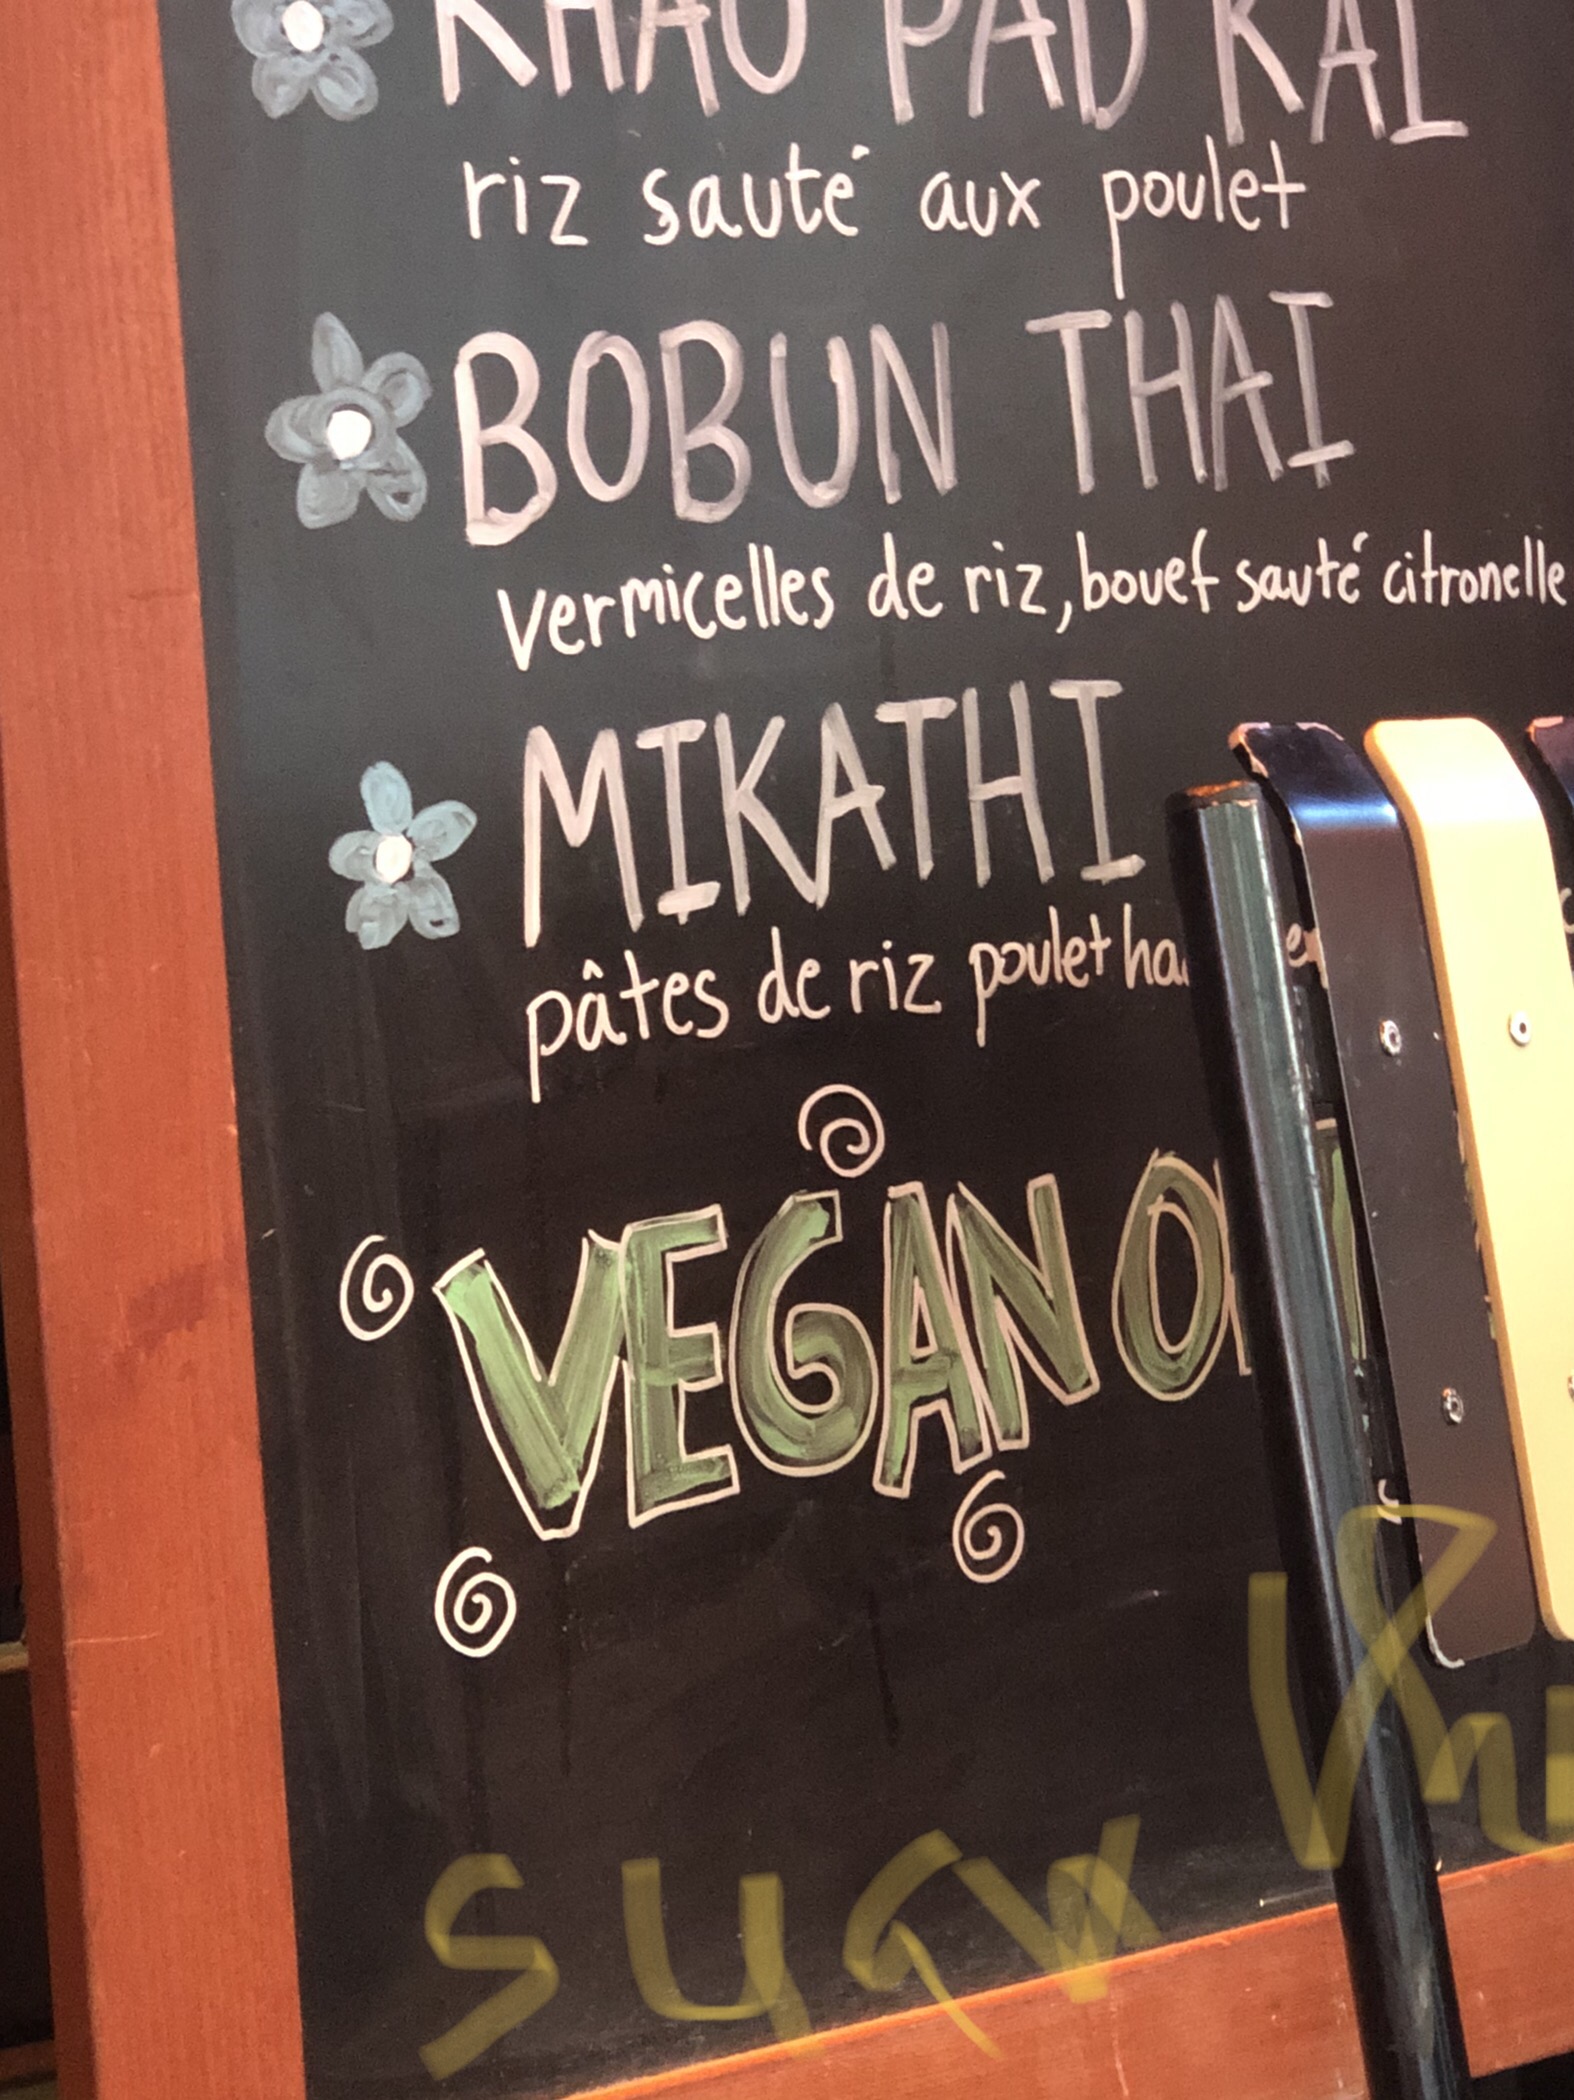 KHAO PAD KAI
riz sauté aux poulet
BOBUN THAI
vermicelles de riz, bouef sauté citronelle
MIKATHI
pâtes de riz poulet
VEGAN